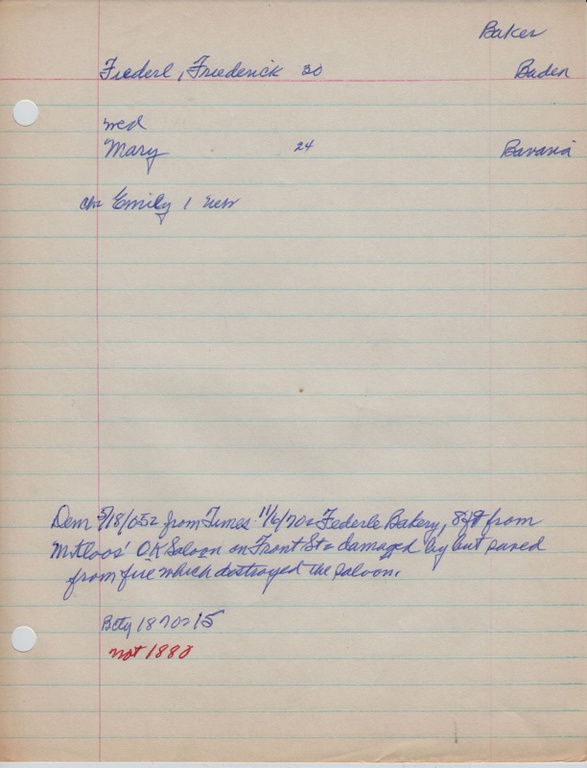 Baker
Fiederl, Friederick 30 Baden
wed
Mary 24 Bavaria
ch= Emily 1 
Dem 5/18/05= from Times 11/6/70= Federle Bakery, 8 ft from
' OK Saloon on Front St= damaged by but saved
from fire which destroyed the saloon.
1870= 15
not 1880